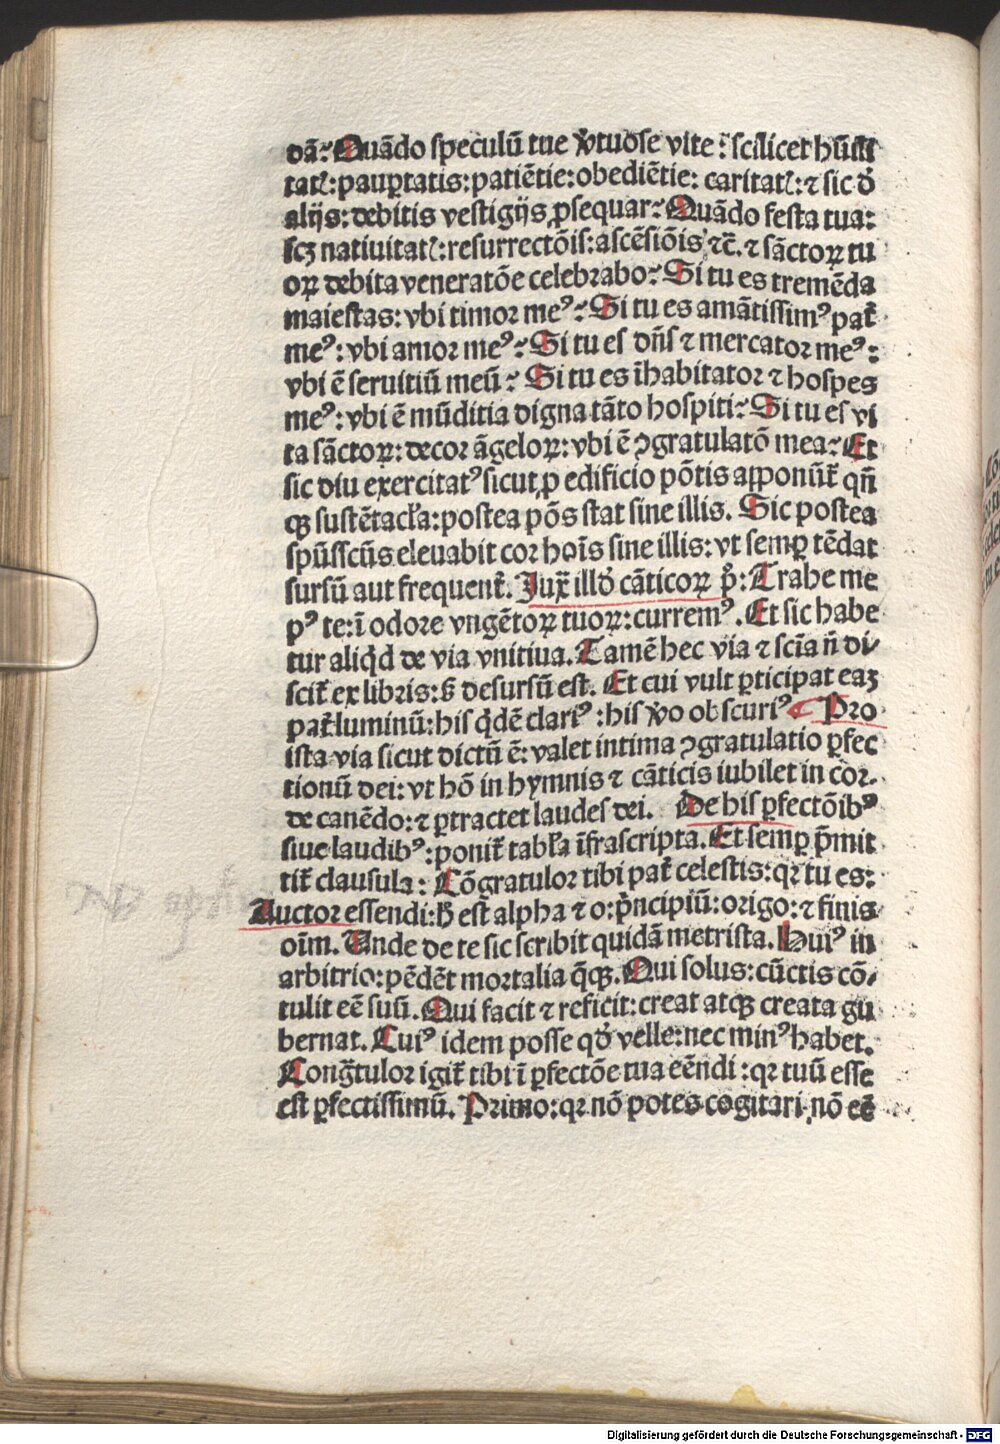 dā? Quādo speculū tue v̾tuose vite: scilicet hūili
tatꝭ: paup̱tatis: patiētie: obediētie: caritatꝭ: ⁊ sic d̾
alijs: debitis vestigijs ꝓsequar? Quādo festa tua:
scꝫ natiuitatꝭ: resurrectōis: ascēsiōis ⁊c̄. ⁊ sāctoꝝ tu
oꝝ debita veneratōe celebrabo? Si tu es tremēda
maiestas: vbi timor meꝰ? Si tu es amātissimꝰ pat̄
meꝰ: vbi amor meꝰ? Si tu es dn̄s ⁊ mercator meꝰ:
vbi ē seruitiū meū? Si tu es īhabitator ⁊ hospes
meꝰ: vbi ē mūditia digna tāto hospiti? Si tu es vi
ta sāctoꝝ: decor āgeloꝝ: vbi ē ꝯgratulatō mea? Et
sic diu exercitatꝰ sicut ꝓ edificio pōtis apponūt̄ qn̄
qꝫ sustētacl̄a: postea pōs stat sine illis. Sic postea
spūsscūs eleuabit cor hoīs sine illis: vt semꝑ tēdat
sursū aut frequent̄. Jux̄ illd̾ cāticoꝝ p̾: Trahe me
pꝰ te: ī odore vngētoꝝ tuoꝝ: curremꝰ. Et sic habe
tur aliq̇d de via vnitiua. Tamē hec via ⁊ scīa n̄ di-
scit̄ ex libris: s̄ desursū est. Et cui vult ꝑticipat eaꝫ
pat̄ luminū: his q̇dē clariꝰ: his v̾o obscuriꝰ Pro
ista via sicut dictū ē: valet intima ꝯgratulatio ꝑfec
tionū dei: vt hō in hymnis ⁊ cāticis iubilet in cor-
de canēdo: ⁊ ꝑtractet laudes dei. De his ꝑfectōibꝰ
siue laudibꝰ: ponit̄ tabl̄a īfrascripta. Et semꝑ p̄mit
tit̄ clausula: Cōgratulor tibi pat̄ celestis: qꝛ tu es:
Auctor essendi: h̄ est alpha ⁊ o: pͥncipiū: origo: ⁊ finis
oīm. Unde de te sic scribit quidā metrista. Huiꝰ in
arbitrio: pēdēt mortalia q̄qꝫ. Qui solus: cūctis cō-
tulit eē suū. Qui facit ⁊ reficit: creat atqꝫ creata gu
bernat. Cuiꝰ idem posse qd̾ velle: nec minꝰ habet.
Congͣtulor igit̄ tibi ī ꝑfectōe tua eēndi: qꝛ tuū esse
est ꝑfectissimū. Primo: qꝛ nō potes cogitari nō eē
Digitalisierung gefördert durch die Deutsche Forschungsgemeinschaft - DFG